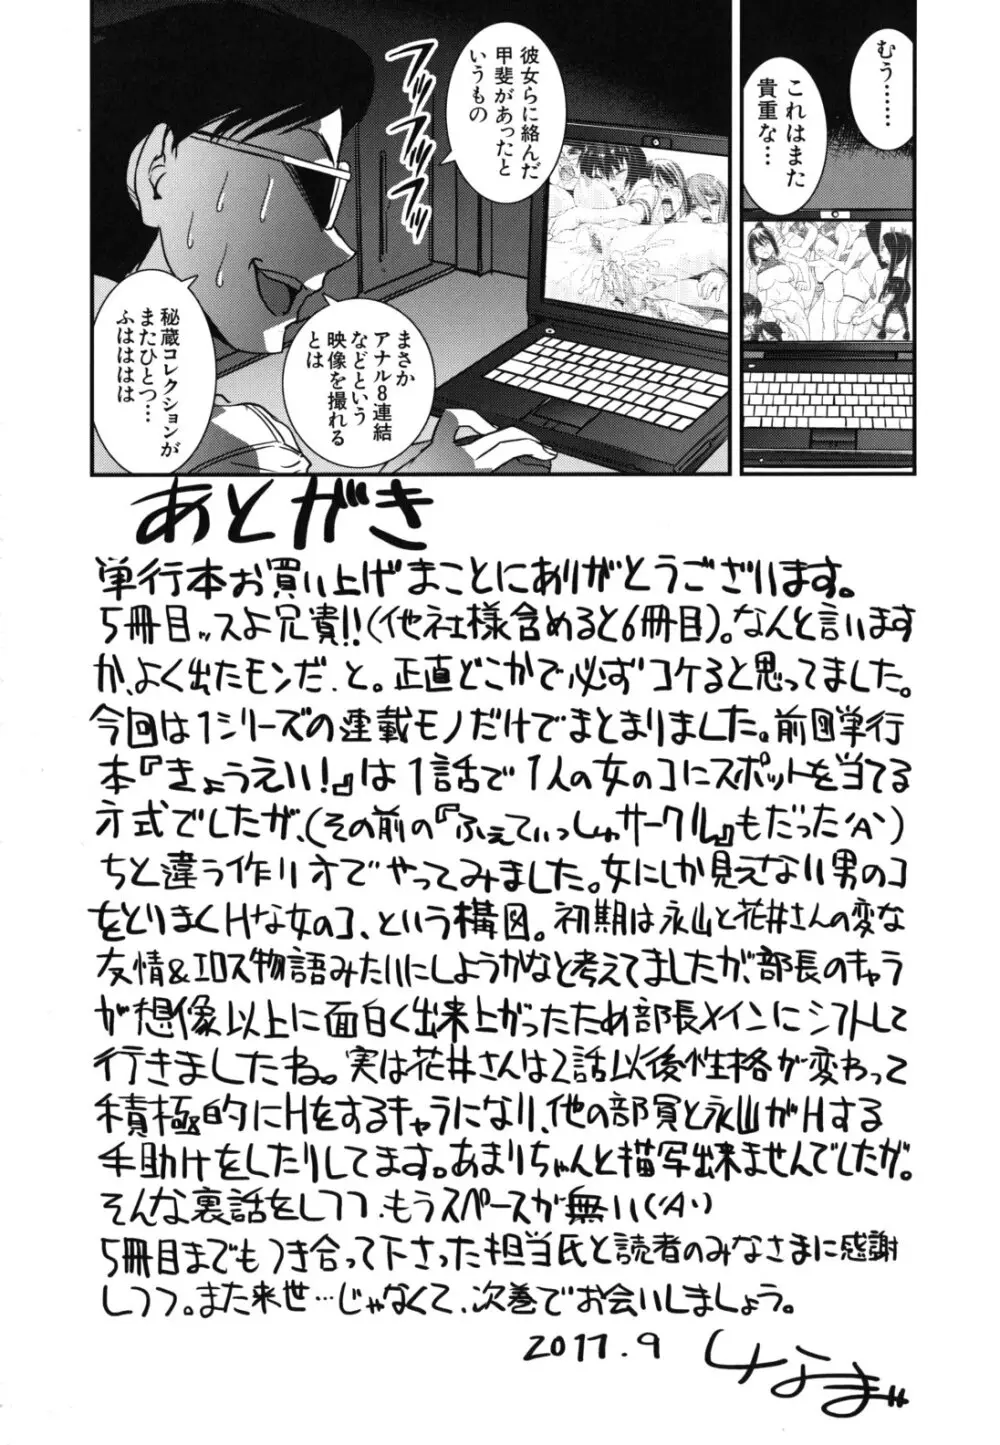 むう……
これはまた
貴重な…
彼女らに絡んだ
甲斐があったと
いうもの
フッフッフッ
まさか
アナル8連結
などという
映像を撮れる
とは
秘蔵コレクションが
またひとつ…
ふはははは
あとがき
単行本お買い上げまことにありがとうございます。
5冊目ッスよ兄貴!!(他社様含めると6冊目)。なんと言います
か、よく出たモンだ、と。正直どこかで必ずコケると思ってました。
今回は1シリーズの連載モノだけでまとまりました。前回単行
本『きょうえい!』は1話で1人の女のコにスポットを当てる
方式でしたが、(その前の『ふぇてぃっしゅサークル』もだった'A`)
ちと違う作り方でやってみました。女にしか見えない男のコ
をとりまくHな女のコ、という構図。初期は永山と花井さんの変な
友情&エロス物語みたいにしようかなと考えてましたが、部長のキャラ
が想像以上に面白く出来上がったため部長メインにシフトして
行きましたね。実は花井さんは2話以後性格が変わって
積極的にHをするキャラになり、他の部員と永山がHする
手助けをしたりしてます。あまりちゃんと描写出来ませんでしたが。
そんな裏話をしつつ、もうスペースが無い('A`)
5冊目までもつき合って下さった担当氏と読者のみなさまに感謝
しつつ。また来世…じゃなくて、次巻でお会いしましょう。
2011.9